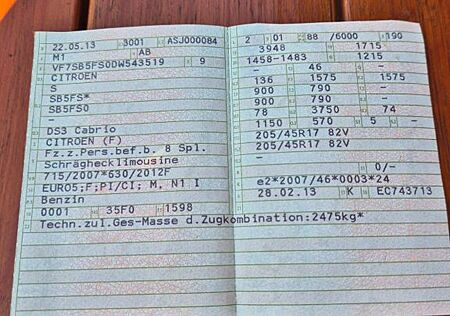 22.05.13 3001 ASJ000084
M1 AB
VF7SB5FS0DW543519 9
CITROEN
S
SB5FS*
SB5FS0
-
DS3 Cabrio
CITROEN (F)
Fz.z.Pers.bef.b. 8 Spl.
Schräghecklimousine
715/2007*630/2012F
EURO5;F;PI/CI; M, N1 I
Benzin
0001 35F0 1598
Techn.zul.Ges-Masse d.Zugkombination:2475kg*
2 01 88 /6000 190
3948 1715
1458-1483 1215
- 46 -
136 1575 1575
900 790 -
900 790 -
78 3750 74
1150 570 5 -
205/45R17 82V
205/45R17 82V
-
0/-
e2*2007/46*0003*24
28.02.13 K EC743713